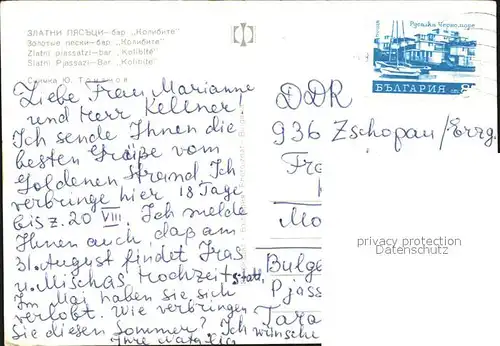 ЗЛАТНИ ПЯСЪЦИ—бар „Колибите"
Золотые пески—бар „Колибите"
Zlatni pjassatzi—Bar „Kolibite"
Slatni Pjassazi—Bar „Kolibite"
Снимка Ю.
Liebe Frau Marianne
und Herr Kellner!
Ich sende Ihnen die
besten Grüße vom
Goldenen Strand. Ich
verbringe hier 18 Tage
bis z. 20 VIII. Ich melde
Ihnen auch, daß am
31. August findet Iras
u. Mischas Hochzeit statt.
Im Mai haben sie sich
verlobt. Wie verbringen
Sie diesen Sommer? Ich wünsche
Ihre
Русалка Черноморе
БЪЛГАРИЯ
DDR
936 Zschopau/Errg.
Fra
Mo
Bulge
Pjass
Tara
privacy protection
Datenschutz